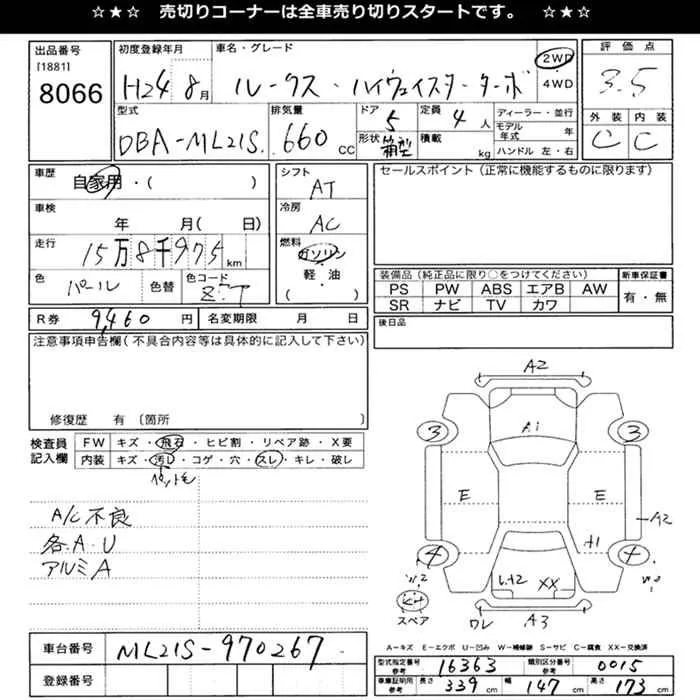 ☆★☆ 売切りコーナーは全車売り切りスタートです。 ☆★☆
出品番号
[1881]
8066
初度登録年月
H24年 8月
車名・グレード
ルークス・ハイウェイスターターボ
2WD
4WD
評価点
3.5
外装 内装
C C
型式
DBA-ML21S
排気量
660 cc
ドア
5
形状 箱型
定員
4人
積載
kg
ディーラー・並行
モデル年式 年
ハンドル 左・右
車歴
自家用・( )
シフト
AT
セールスポイント(正常に機能するものに限ります)
車検
年 月( 日)
冷房
AC
走行
15万8千975km
燃料
ガソリン
軽・油
( )
色
パール
色替
色コード
Z7T
装備品(純正品に限り○をつけてください) 新車保証書
PS PW ABS エアB AW
SR ナビ TV カワ
有・無
R券 9,460円 名変期限 月 日
後日品
注意事項申告欄(不具合内容等は具体的に記入して下さい)
修復歴 有〔箇所 〕
検査員記入欄
FW キズ・飛石・ヒビ割・リペア跡・X要
内装 キズ・汚し・コゲ・穴・スレ・キレ・破レ
A/C不良
各A・U
アルミA
A2
A1
3 3
E E
A2
A1
4 4
LA2 XX
スペア
ワレ A3
A−キズ E−エクボ U−凹み W−補修跡 S−サビ C−腐食 XX−交換済
車台番号 ML21S-970267
登録番号
型式指定番号 参考 16363 類別区分番号 参考 0015
車庫証明用 参考 長さ 339 cm 幅 147 cm 高さ 173 cm